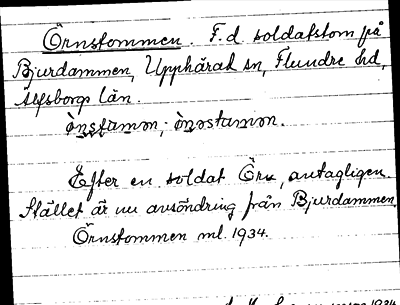 Örnstommen. F. d. soldatstom på
Bjurdammen, Upphärad sn, Flundre hd,
Älfsborgs län.
Efter en soldat Örn, antagligen.
Stället är nu avsöndring från Bjurdammen.
Örnstommen ml. 1934.
1934